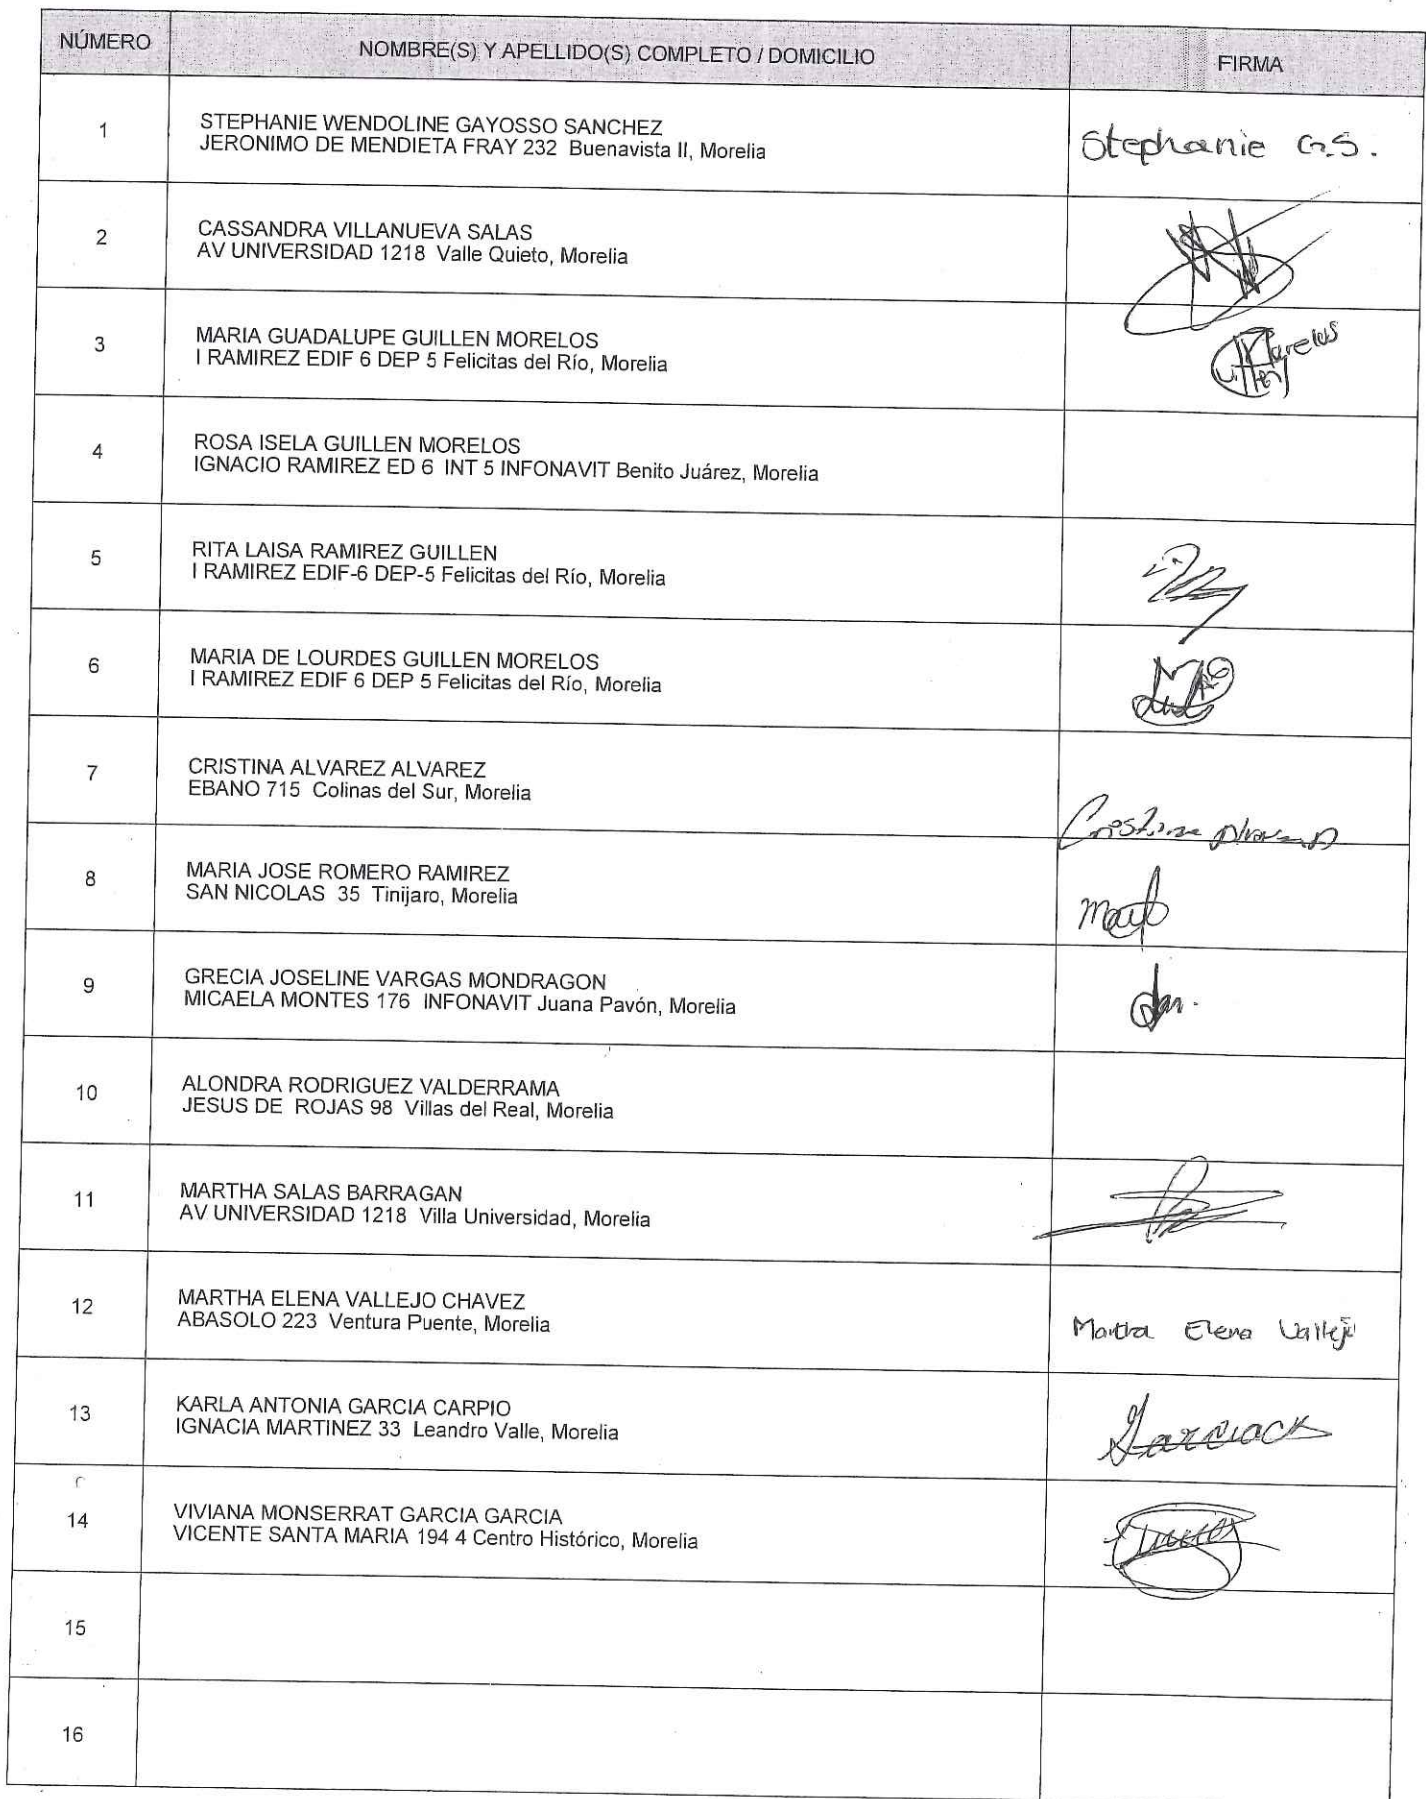 NÚMERO NOMBRE(S) Y APELLIDO(S) COMPLETO / DOMICILIO FIRMA
1 STEPHANIE WENDOLINE GAYOSSO SANCHEZ
JERONIMO DE MENDIETA FRAY 232 Buenavista II, Morelia
Stephanie G.S.
2 CASSANDRA VILLANUEVA SALAS
AV UNIVERSIDAD 1218 Valle Quieto, Morelia
3 MARIA GUADALUPE GUILLEN MORELOS
I RAMIREZ EDIF 6 DEP 5 Felicitas del Río, Morelia
Morelos
4 ROSA ISELA GUILLEN MORELOS
IGNACIO RAMIREZ ED 6 INT 5 INFONAVIT Benito Juárez, Morelia
5 RITA LAISA RAMIREZ GUILLEN
I RAMIREZ EDIF-6 DEP-5 Felicitas del Río, Morelia
6 MARIA DE LOURDES GUILLEN MORELOS
I RAMIREZ EDIF 6 DEP 5 Felicitas del Río, Morelia
7 CRISTINA ALVAREZ ALVAREZ
EBANO 715 Colinas del Sur, Morelia
Cristina Alvarez A
8 MARIA JOSE ROMERO RAMIREZ
SAN NICOLAS 35 Tinijaro, Morelia
9 GRECIA JOSELINE VARGAS MONDRAGON
MICAELA MONTES 176 INFONAVIT Juana Pavón, Morelia
10 ALONDRA RODRIGUEZ VALDERRAMA
JESUS DE ROJAS 98 Villas del Real, Morelia
11 MARTHA SALAS BARRAGAN
AV UNIVERSIDAD 1218 Villa Universidad, Morelia
12 MARTHA ELENA VALLEJO CHAVEZ
ABASOLO 223 Ventura Puente, Morelia
Martha Elena Vallejo
13 KARLA ANTONIA GARCIA CARPIO
IGNACIA MARTINEZ 33 Leandro Valle, Morelia
Garciack
14 VIVIANA MONSERRAT GARCIA GARCIA
VICENTE SANTA MARIA 194 4 Centro Histórico, Morelia
15
16